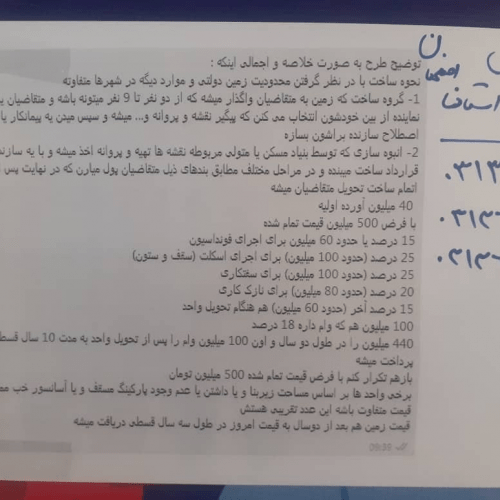 توضیح طرح به صورت خلاصه و اجمالی اینکه :
نحوه ساخت با در نظر گرفتن محدودیت زمین دولتی و موارد دیگه در شهرها متفاوته
1- گروه ساخت که زمین به متقاضیان واگذار میشه که از دو نفر تا 9 نفر میتونه باشه و متقاضیان
نماینده از بین خودشون انتخاب می کنن که پیگیر نقشه و پروانه و... میشه و سپس میدن به پیمانکار یا
اصطلاح سازنده براشون بسازه
2- انبوه سازی که توسط بنیاد مسکن یا متولی مربوطه نقشه ها تهیه و پروانه اخذ میشه و با یه
قرارداد ساخت میبنده و در مراحل مختلف مطابق بندهای ذیل متقاضیان پول میارن که در نهایت پس
اتمام ساخت تحویل متقاضیان میشه
40 میلیون آورده اولیه
با فرض 500 میلیون قیمت تمام شده
15 درصد یا حدود 60 میلیون برای اجرای فونداسیون
25 درصد (حدود 100 میلیون) برای اجرای اسکلت (سقف و ستون)
25 درصد (حدود 100 میلیون) برای سفتکاری
20 درصد (حدود 80 میلیون) برای نازک کاری
15 درصد آخر (حدود 60 میلیون) هم هنگام تحویل واحد
100 میلیون هم که وام داره 18 درصد
440 میلیون را در طول دو سال و اون 100 میلیون وام را پس از تحویل واحد به مدت 10 سال
پرداخت میشه
بازهم تکرار کنم با فرض قیمت تمام شده 500 میلیون تومان
برخی واحد ها بر اساس مساحت زیربنا و یا داشتن یا عدم وجود پارکینگ مسقف و یا آسانسور خب
قیمت متفاوت باشه این عدد تقریبی هستش
قیمت زمین هم بعد از دوسال به قیمت امروز در طول سه سال قسطی دریافت میشه